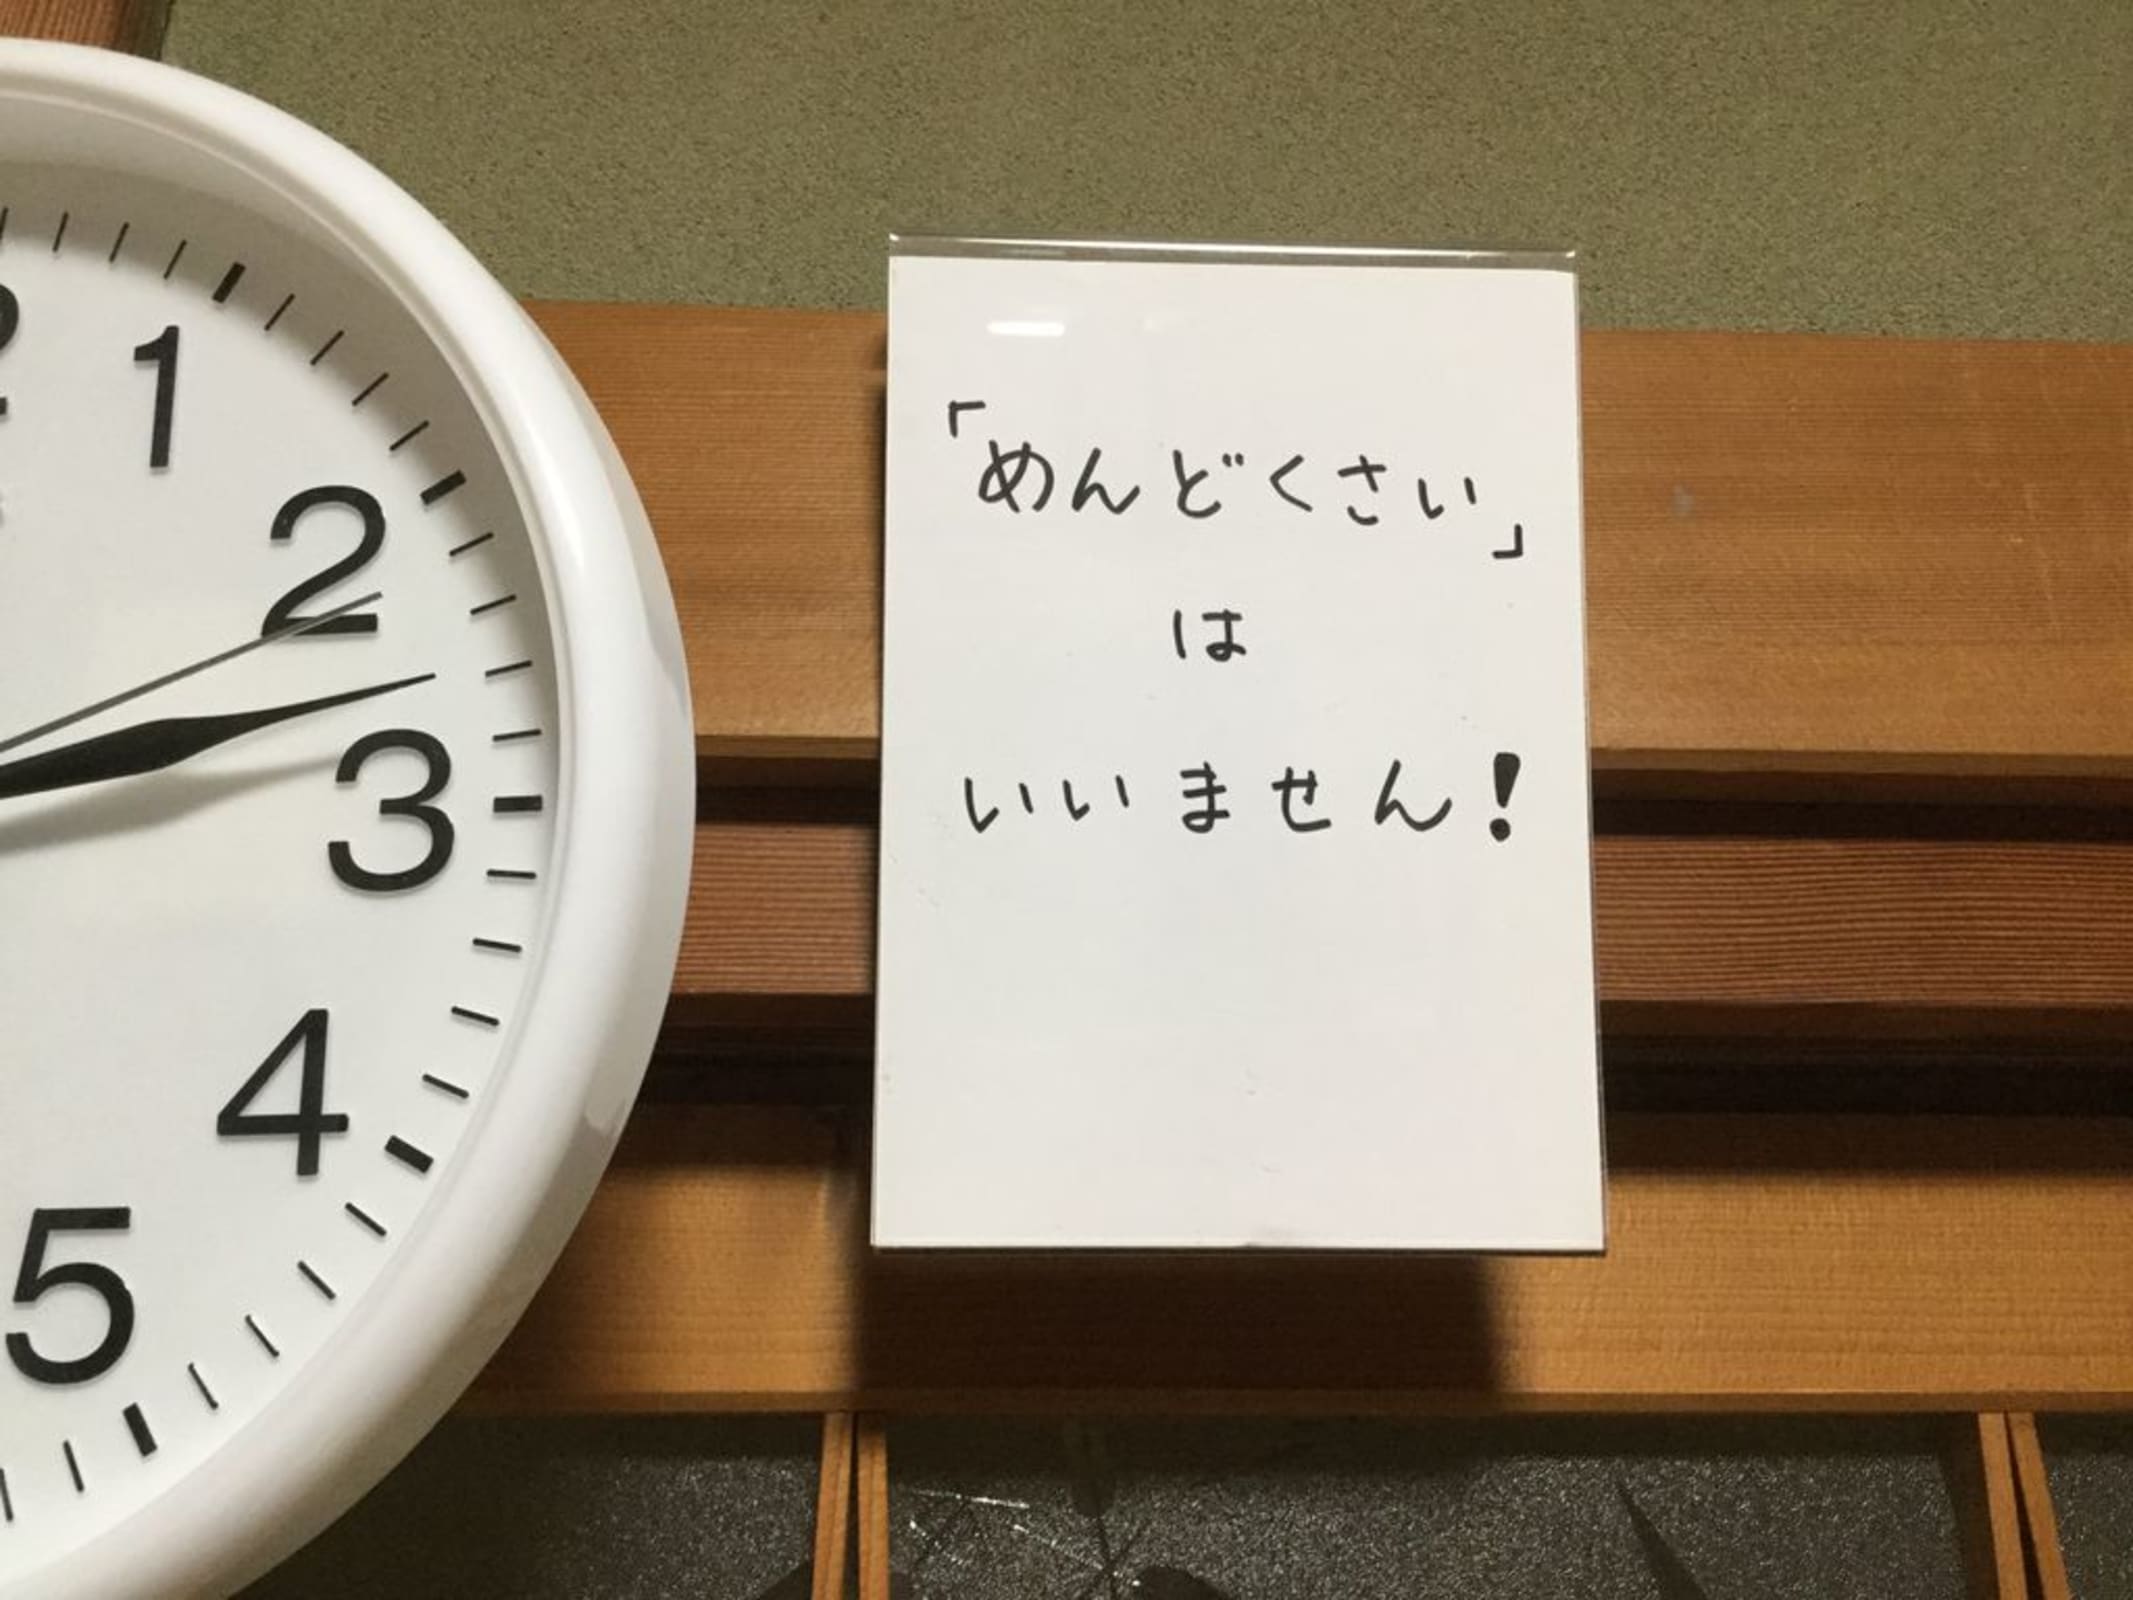 1
2
3
4
5
「めんどくさい」
は
いいません!